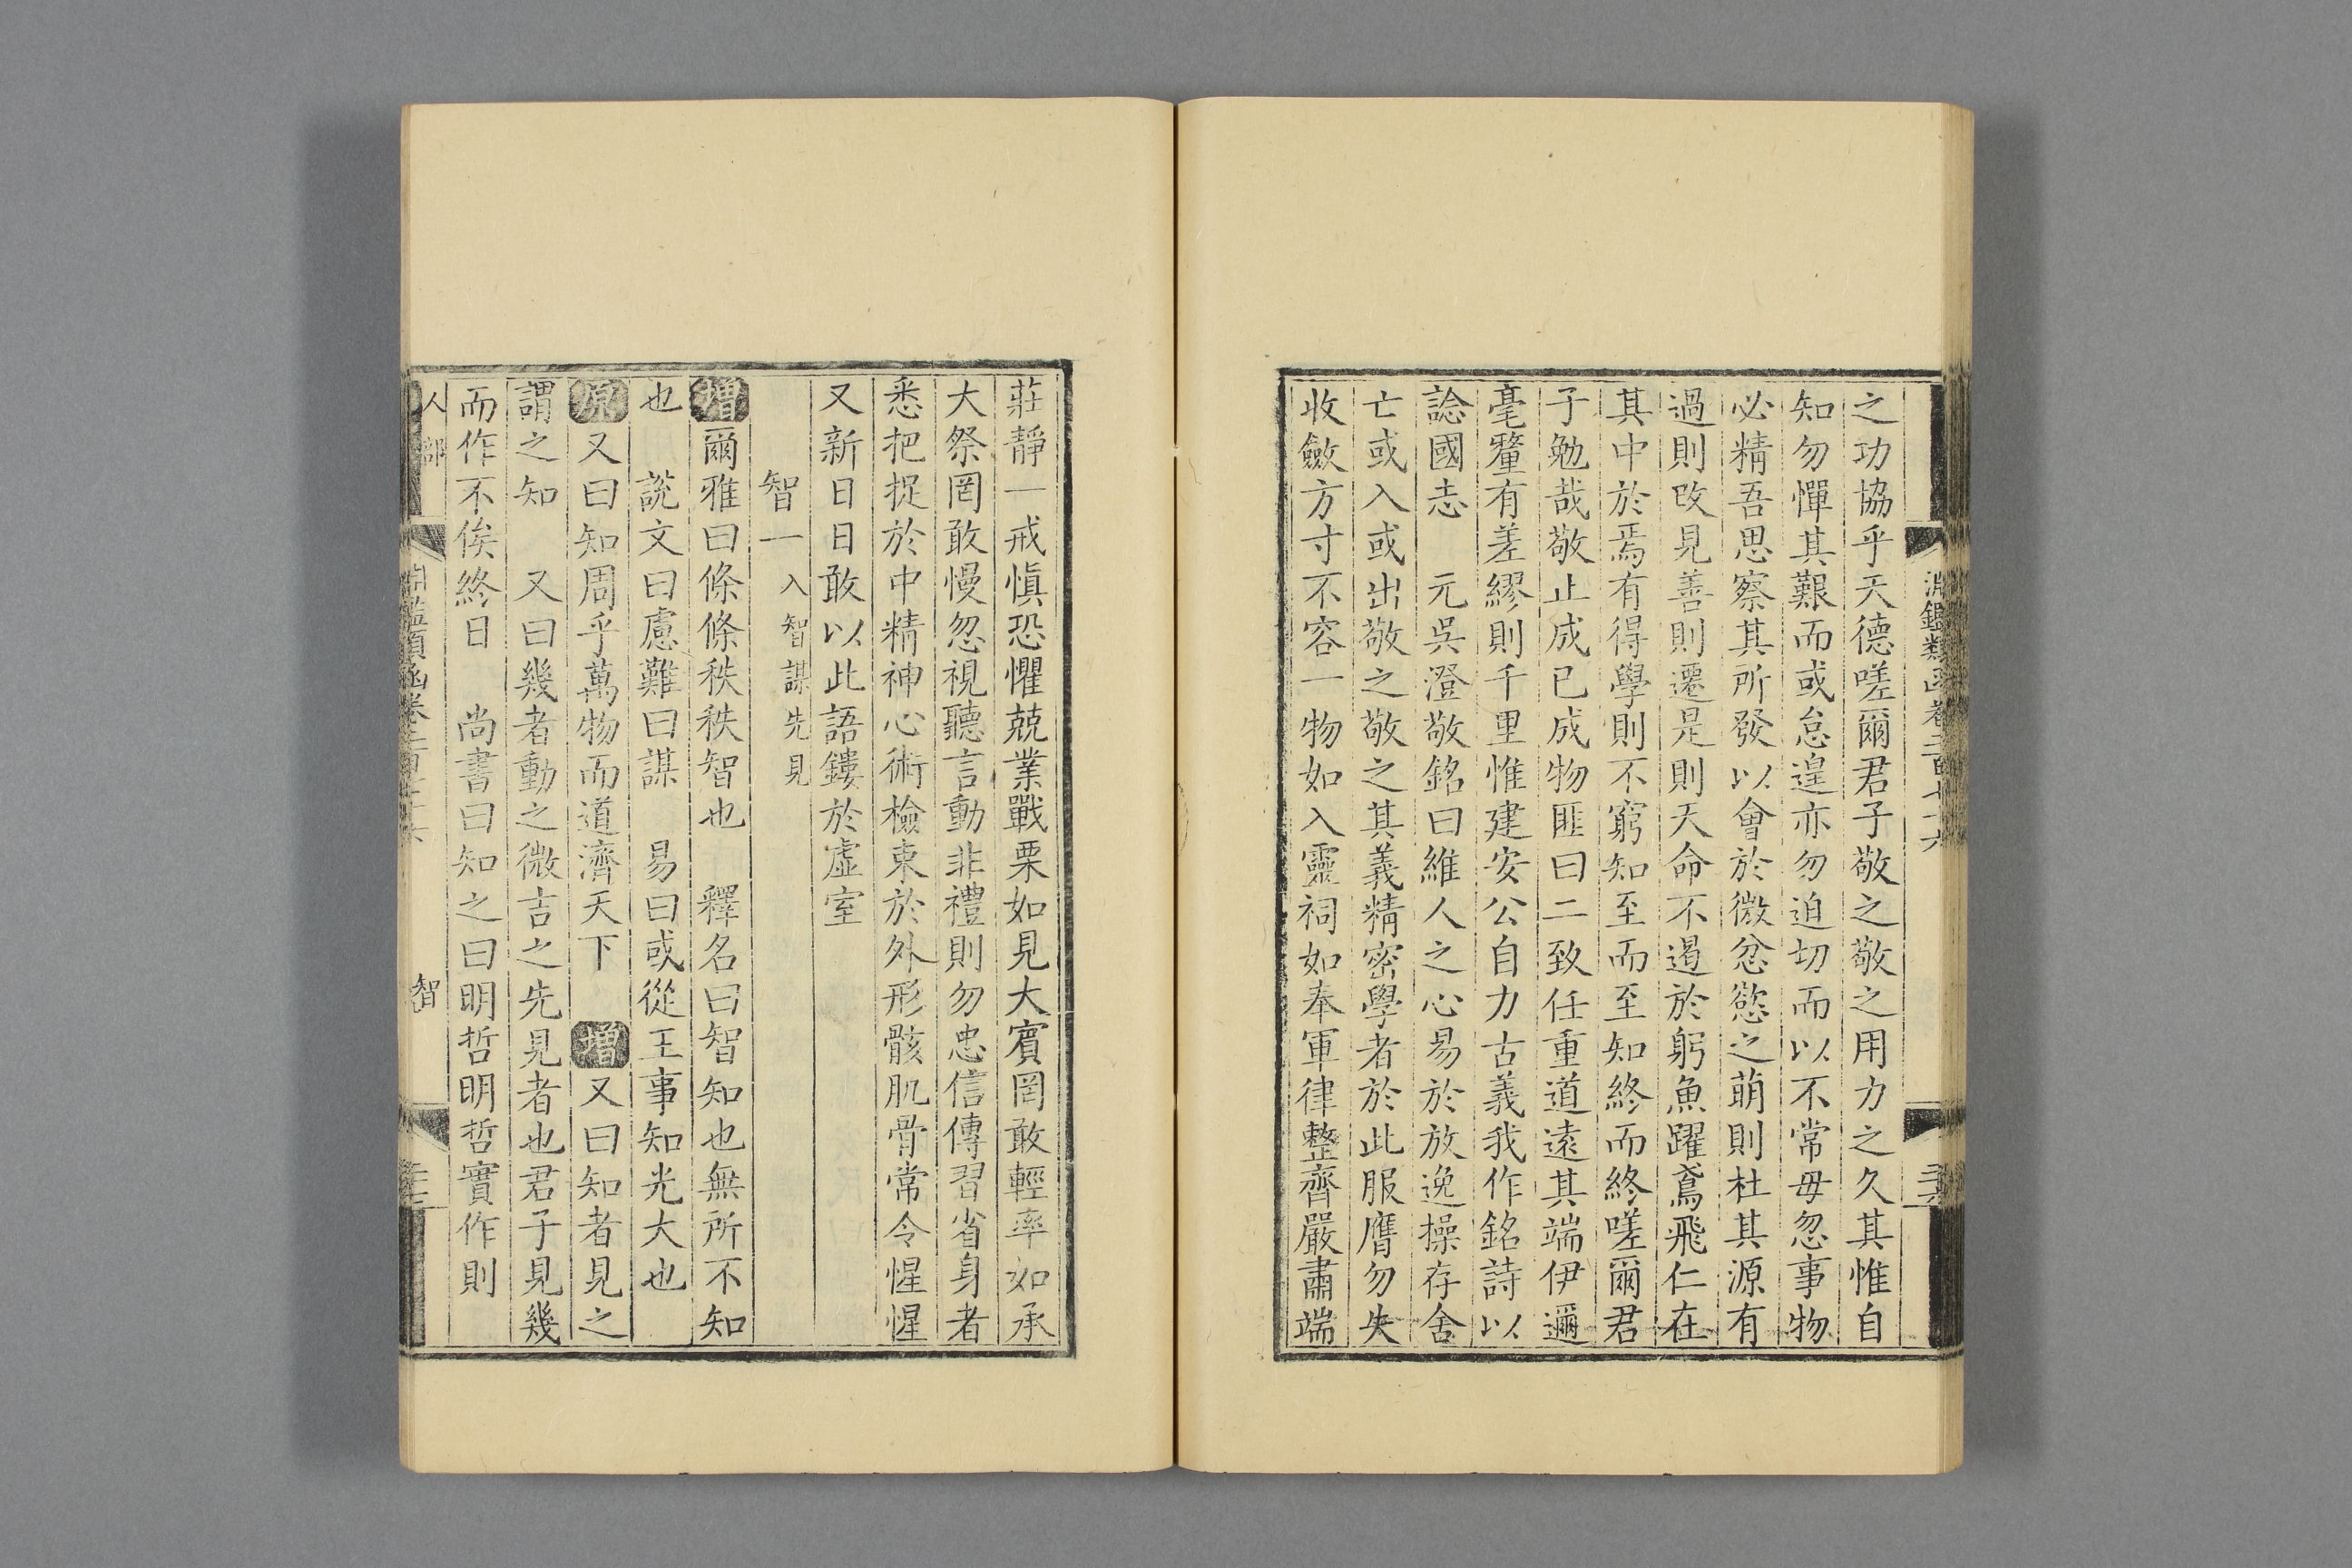 淵鑑類函卷二百七十六
之功協乎天德嗟爾君子敬之敬之用力之久其惟自
知勿憚其艱而或怠遑亦勿迫切而以不常毋忽事物
必精吾思察其所發以會於微忿慾之萌則杜其源有
過則改見善則遷是則天命不遏於躬魚躍鳶飛仁在
其中於焉有得學則不窮知至而至知終而終嗟爾君
子勉哉敬止成已成物匪曰二致任重道遠其端伊邇
毫釐有差繆則千里惟建安公自力古義我作銘詩以
諗國志 元吳澄敬銘曰維人之心易於放逸操存舍
亡或入或出敬之敬之其義精密學者於此服膺勿失
收斂方寸不容一物如入靈祠如奉軍律整齊嚴肅端
莊靜一戒慎恐懼兢業戰栗如見大賓罔敢輕率如承
大祭罔敢慢忽視聽言動非禮則勿忠信傳習省身者
悉把捉於中精神心術檢束於外形骸肌骨常令惺惺
又新日日敢以此語鏤於虛室
智一 入智謀先見
增爾雅曰條條秩秩智也 釋名曰智知也無所不知
也 說文曰慮難曰謀 易曰或從王事知光大也
原又曰知周乎萬物而道濟天下 增又曰知者見之
謂之知 又曰幾者動之微吉之先見者也君子見幾
而作不俟終日 尚書曰知之曰明哲明哲實作則
人部 淵鑑類函卷二百七十六 智